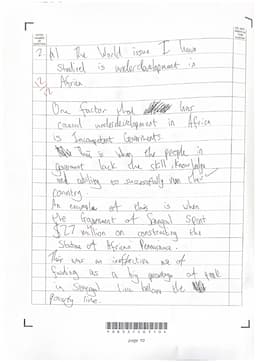 2 a) The World issue I have
studied is underdevelopment in
Africa
12
12
One factor that has
caused underdevelopment in Africa
is Incompetent Governments.
This is when the people in
government lack the skill, knowledge
and ability to successfully run the
country.
An example of this is when
the Government of Senegal spent
$27 million on constructing the
Statue of African Renaissance.
This was an ineffective use of
funding as a big percentage of people
in Senegal live below the
Poverty line.
page 10